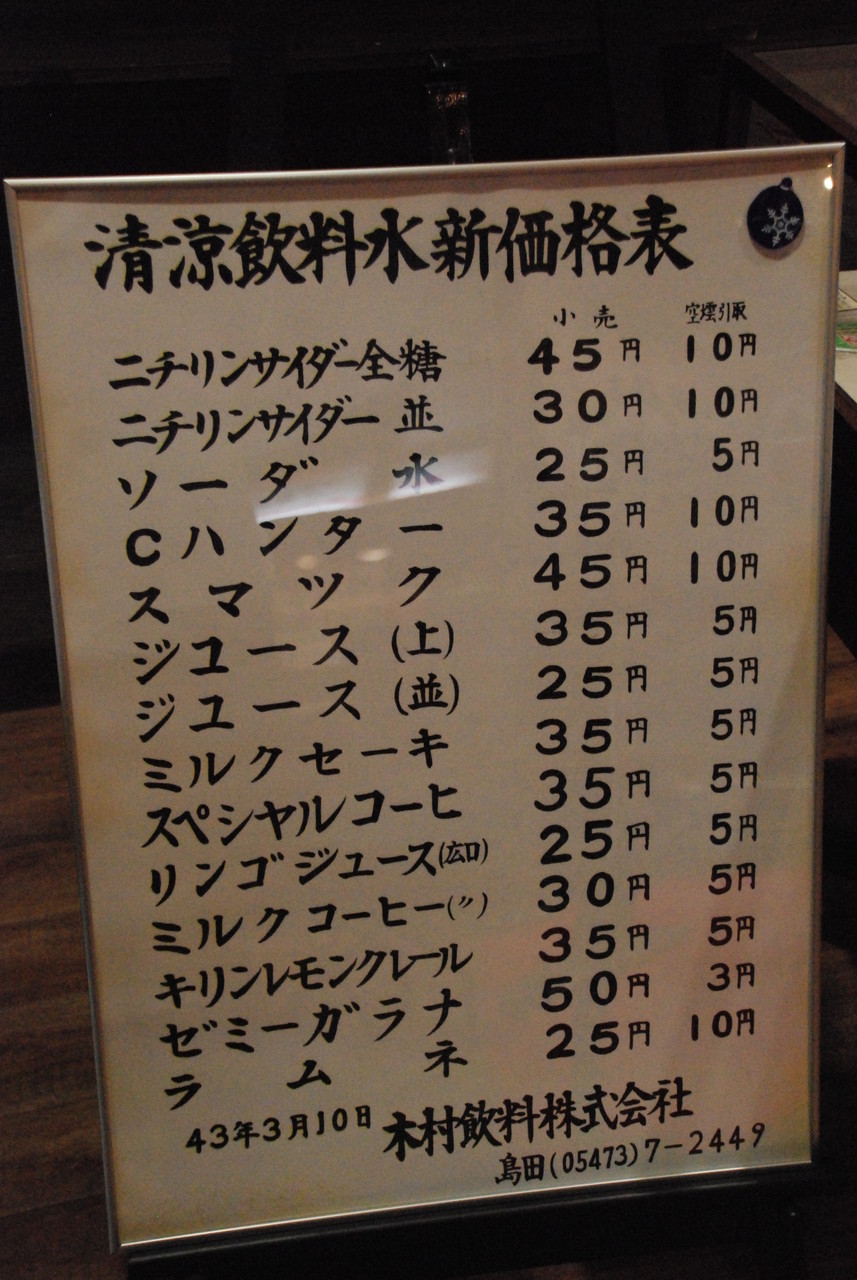 清涼飲料水新価格表
小売 空壜引取
ニチリンサイダー全糖 45円 10円
ニチリンサイダー並 30円 10円
ソーダ水 25円 5円
Cハンター 35円 10円
スマツク 45円 10円
ジユース(上) 35円 5円
ジユース(並) 25円 5円
ミルクセーキ 35円 5円
スペシヤルコーヒ 35円 5円
リンゴジュース(広口) 25円 5円
ミルクコーヒー(〃) 30円 5円
キリンレモンクレール 35円 5円
ゼミーガラナ 50円 3円
ラムネ 25円 10円
43年3月10日 木村飲料株式会社
島田(05473)7-2449